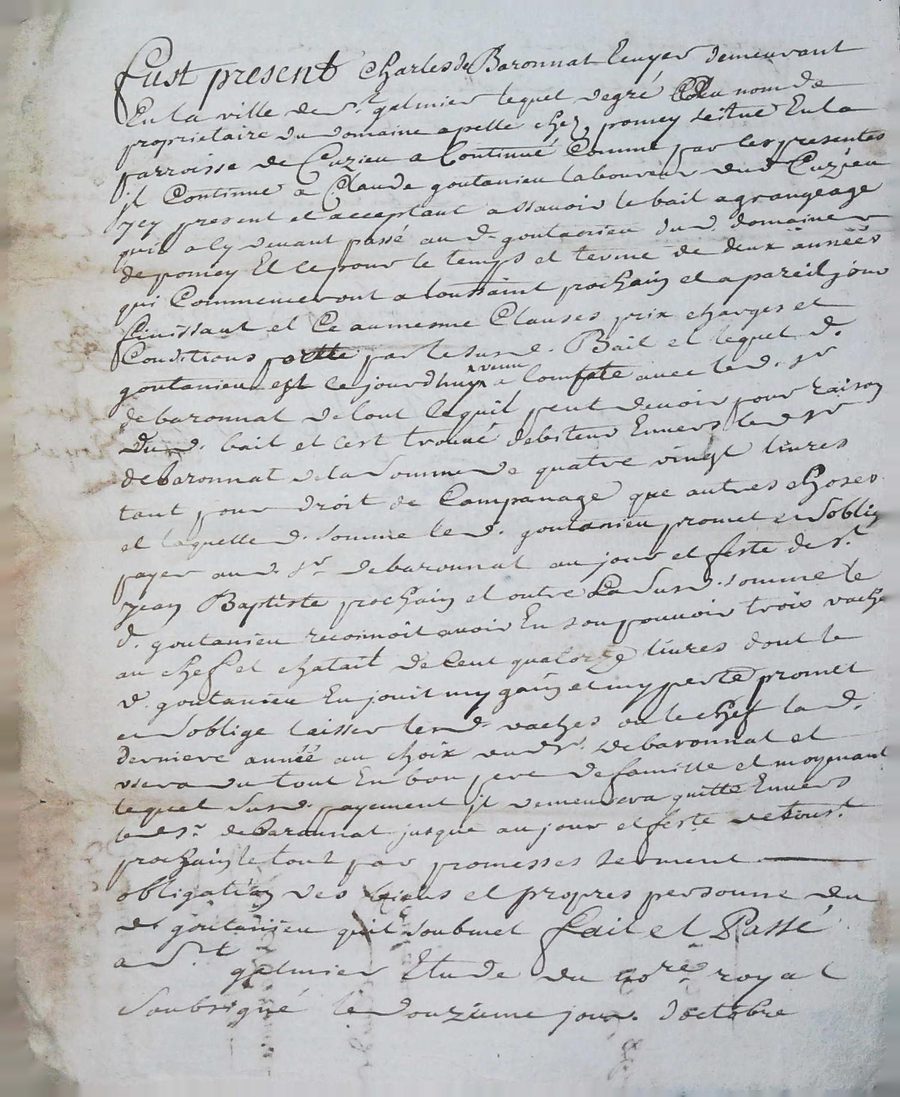 fust present Charles de Baronnat Ecuyer demeurant
En la ville de st. galmier lequel degré Et au nom de
proprietaire du domaine apellé chez pomey seitué En la
parroisse de Cuzieu a Continué Comme par les presentes
il Continue a Claude goutanieu laboureur dud Cuzieu
jcy present et acceptant assavoir le bail a grangeage
quil a cy devant passé au d. goutanieu dud. domaine
de pomey Et ce pour le temps et terme de deux années
qui Commenceront a toussaint prochain et a pareil jour
finissant et Ce au mesme Clauses prix charges et
Conditions portte par le susd. Bail et lequel d.
goutanieu est cejourdhuy venu a Compte avec led. sr
debaronnat de tout cequil peut devoir pour raison
Dud. bail et cest trouvé debiteur Envers led sr
debaronnat de la somme de quatre vingt livres
tant pour droit de Campanage que autres choses
et laquelle d. somme led. goutanieu promet et soblige
payer aud. sr. debaronnat au jour et feste de st.
jean Baptiste prochain et outre La susd. somme le
d. goutanieu reconnoit avoir En son pouvoir trois vache
au chef et chatait de Cent quatorze livres dont le
d. goutanieu En jouit my gain et my perte promet
et soblige laisser lesd. vaches ou le chef la d.
derniere année au choix dud sr. debaronnat et
usera du tout En bon pere de famille et moyenant
lequel susd. payement jl demeurera quitte Envers
led sr. debaronnat jusque au jour et feste de toust.
prochain le tout par promesses serment
obligation des biens et propres personne du
d. goutanieu quil soubmet fait et Passé
a st.
galmier Etude du nore royal
soubsigné le douzieme jour doctobre